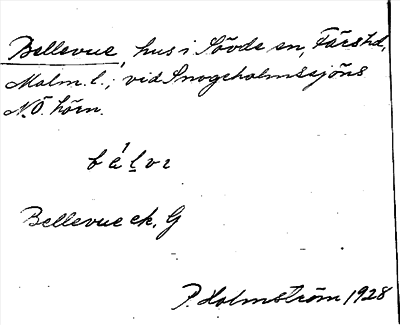 Bellevue, hus i Sövde sn, Färs hd,
Malm. l.; vid Snogeholmssjöns
N.Ö. hörn.
bɛ́lvɩ
Bellevue ek. G
P. Holmström 1928